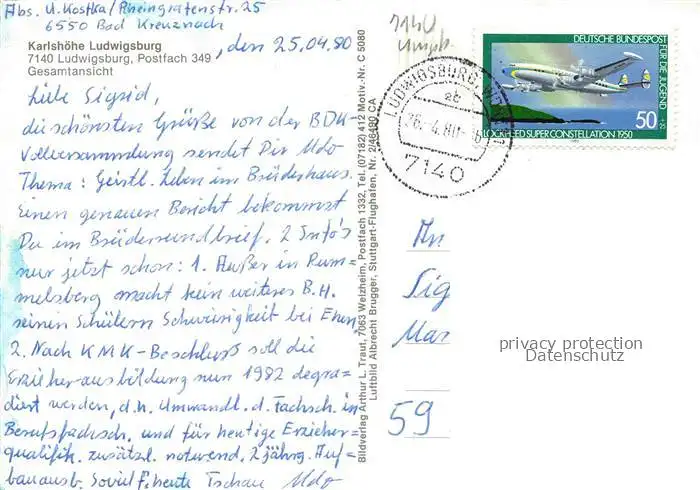 Abs. U. Kostka/Rheingrafenstr. 25
6550 Bad Kreuznach
Karlshöhe Ludwigsburg
7140 Ludwigsburg, Postfach 349
Gesamtansicht
, den 25.04.80
Liebe Sigrid,
die schönsten Grüße von der BDK-
Vollversammlung sendet Dir Udo
Thema: Geistl. Leben im Brüderhaus.
Einen genauen Bericht bekommst
Du im Brüderrundbrief. 2 Info's
nur jetzt schon: 1. Außer in Rum-
melsberg macht kein weiteres B.H.
seinen Schülern Schwierigkeit bei Ehen,
2. Nach KMK-Beschluss soll die
Erzieherausbildung nun 1982 degra-
diert werden, d.h. Umwandl. d. Fachsch. in
Berufsfachsch. und für heutige Erzieher-
qualifik. zusätzl. notwend. 2 jährg. Auf-
bauausb. Soviel f. heute Tschau Udo
Bildverlag Arthur L. Traut, 7063 Welzheim, Postfach 1332, Tel. (07182) 412 Motiv.-Nr. C 5080
Luftbild Albrecht Brugger, Stuttgart-Flughafen, Nr. 2/46490 CA
7140
DEUTSCHE BUNDESPOST
FÜR DIE JUGEND
+25
50
LOCKHEED SUPER CONSTELLATION 1950
LUDWIGSBURG
ab
26.-4.80
7140
An
Sig
Mar
59
privacy protection
Datenschutz